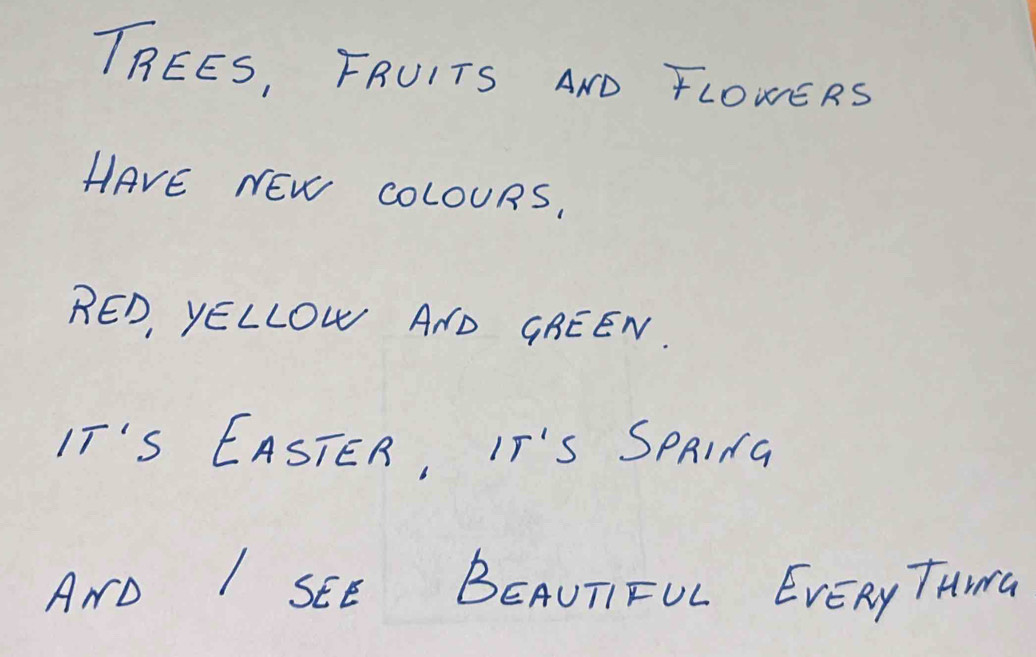 TREES, FRUITS AND FLOWERS
HAVE NEW COLOURS,
RED, YELLOW AND GREEN.
IT'S EASTER, IT'S SPRING
AND I SEE BEAUTIFUL EVERYTHING